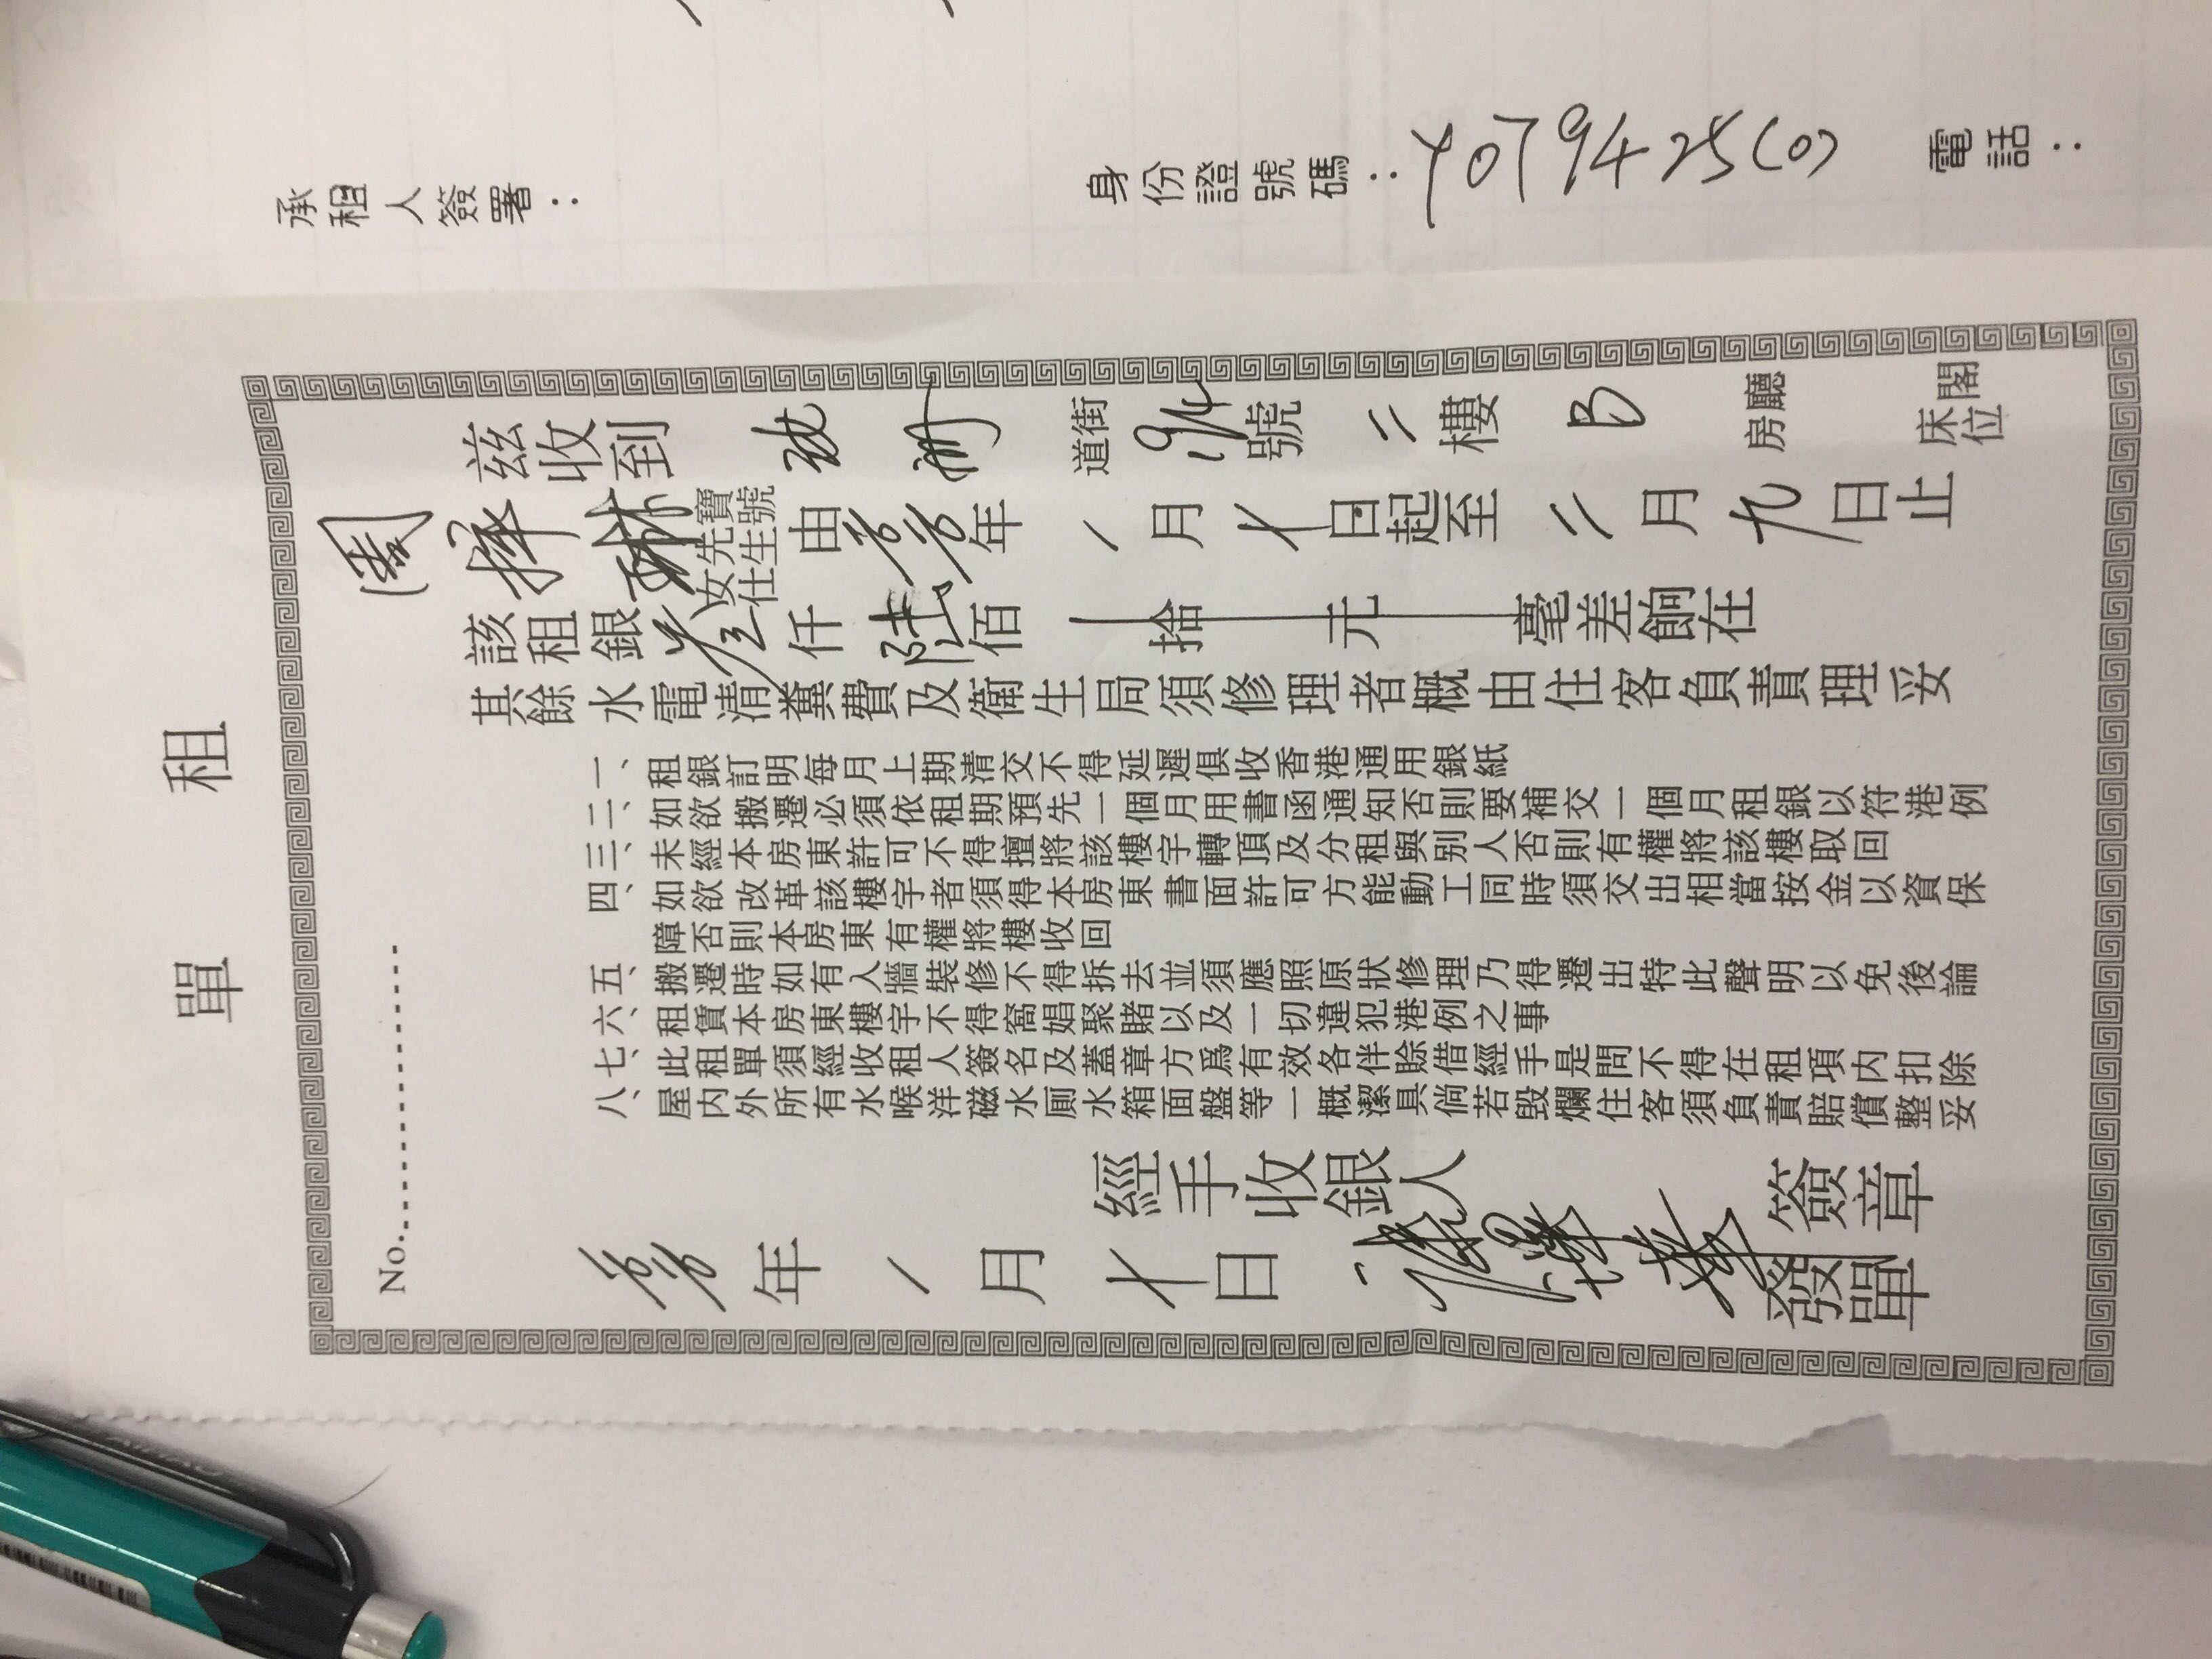 承租人簽署：
身份證號碼：Y079425(0)
電話：
租單
No.
茲收到 道街 94 號 二 樓 B 房廳 床位閣
女仕先生寶號 由 年 一月十日起至二月九日止
該租銀叁仟陸佰 拾 元 毫差餉在
其餘水電清糞費及衛生局須修理者概由住客負責理妥
一、租銀訂明每月上期清交不得延遲俱收香港通用銀紙
二、如欲搬遷必須依租期預先一個月用書函通知否則要補交一個月租銀以符港例
三、如未經本房東許可不得擅將該樓宇轉頂及分租與别人否則有權將該樓取回
四、如欲改革該樓宇者須得本房東書面許可方能動工同時須交出相當按金以資保
障否則本房東有權將樓收回
五、搬遷時如有入牆裝修不得拆去並須應照原狀修理乃得遷出特此聲明以免後論
六、租賃本房東樓宇不得窩娼聚賭以及一切違犯港例之事
七、此租單須經收租人簽名及蓋章方爲有效各伴賒借經手是問不得在租項内扣除
八、屋内外所有水喉洋磁水厠水箱面盤等一概潔具倘若毀爛住客須負責賠償整妥
經手收銀人 簽章
年一月十日 發單